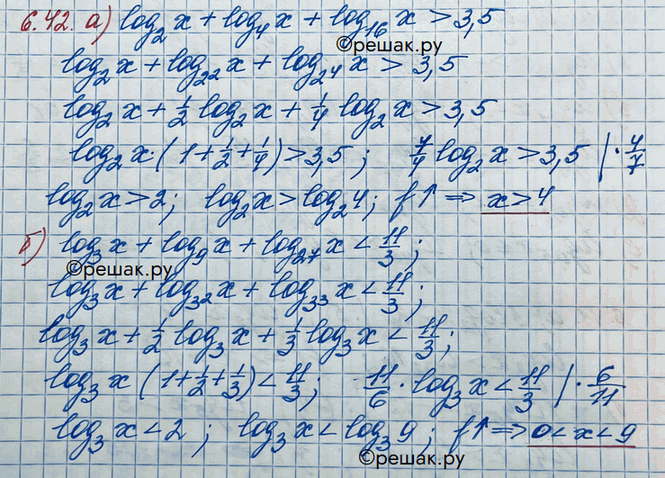 6.42. а) log₂x + log₄x + log₁₆x > 3,5
©решак.ру
log₂x + log_{2²}x + log_{2⁴}x > 3,5
log₂x + 1/2 log₂x + 1/4 log₂x > 3,5
log₂x (1 + 1/2 + 1/4) > 3,5; 7/4 log₂x > 3,5 | · 4/7
log₂x > 2; log₂x > log₂4; f↑ ⇒ x > 4
б) log₃x + log₉x + log₂₇x < 11/3;
©решак.ру
log₃x + log_{3²}x + log_{3³}x < 11/3;
log₃x + 1/2 log₃x + 1/3 log₃x < 11/3;
log₃x (1 + 1/2 + 1/3) < 11/3; 11/6 · log₃x < 11/3 | · 6/11
log₃x < 2; log₃x < log₃9; f↑ ⇒ 0 < x < 9
©решак.ру